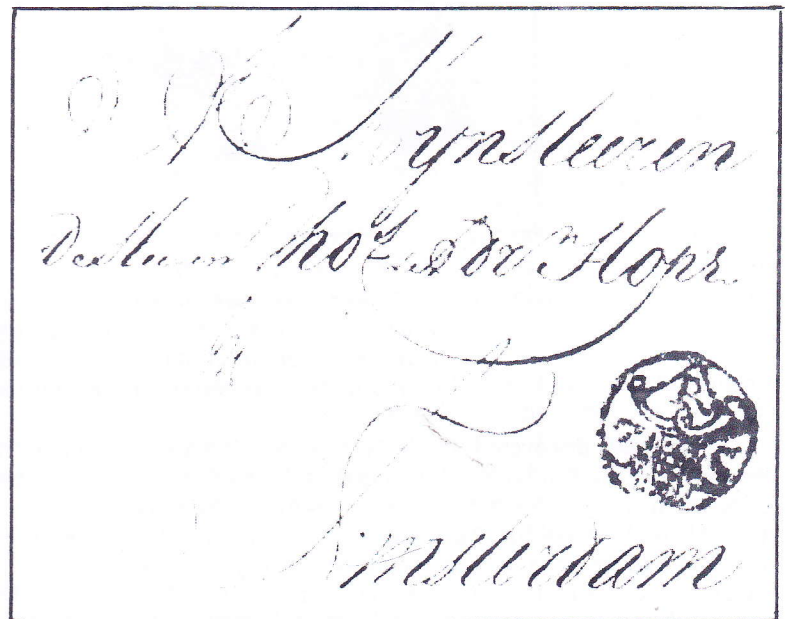 Myn Heeren
De Heeren Tho.s & Adr.n Hope
Amsterdam